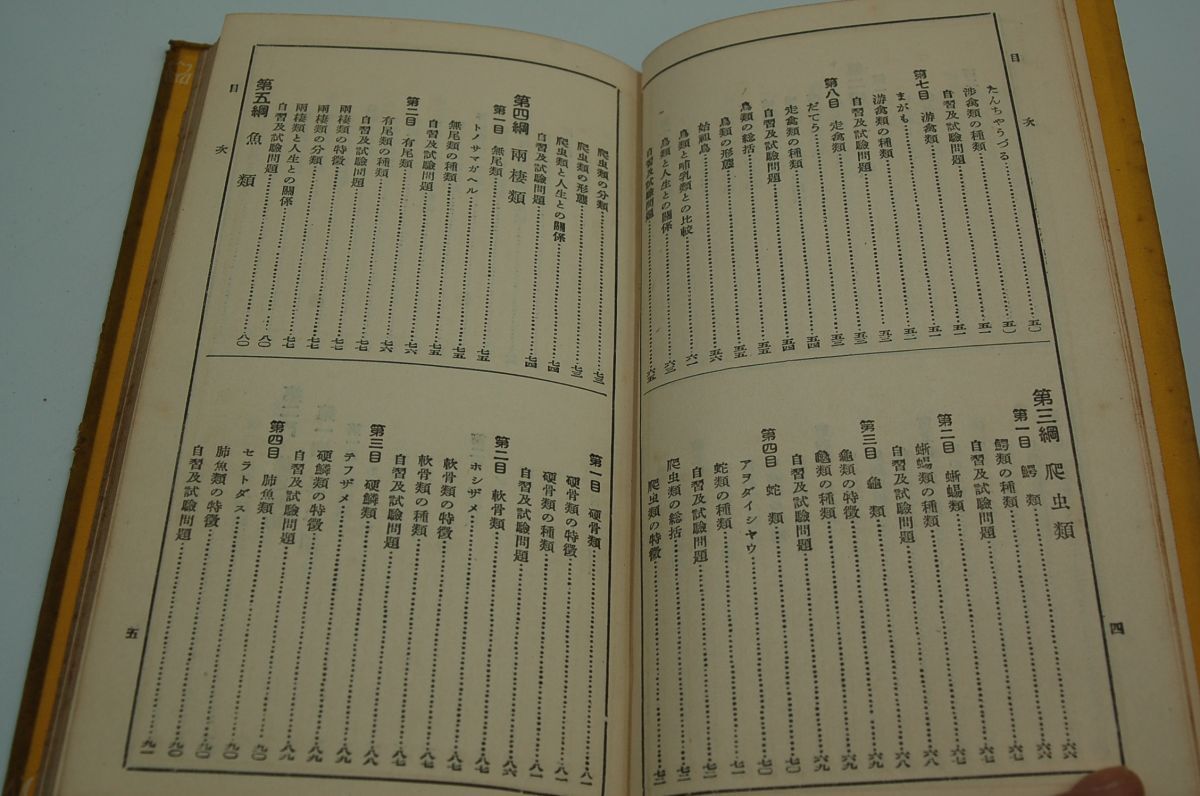 目次
たんちやうづる……五〇
渉禽類の種類……五一
自習及試驗問題……五一
第七目 游禽類……五一
まがも……五二
游禽類の種類……五三
自習及試驗問題……五三
第八目 走禽類……五三
だてう……五四
走禽類の種類……五四
自習及試驗問題……五五
鳥類の総括……五五
鳥類の形態……五五
始祖鳥……五六
鳥類と哺乳類との比較……六一
鳥類と人生との關係……六三
自習及試驗問題……六五
第三綱 爬虫類……六六
第一目 鰐類……六六
鰐類の種類……六七
自習及試驗問題……六七
第二目 蜥蜴類……六七
蜥蜴類の種類……六八
自習及試驗問題……六八
第三目 龜類……六九
龜類の特徵……六九
龜類の種類……六九
自習及試驗問題……七〇
第四目 蛇類……七〇
アヲダイシヤウ……七一
蛇類の種類……七二
自習及試驗問題……七二
爬虫類の総括……七二
爬虫類の特徵……七二
四
目次
爬虫類の分類……七三
爬虫類の形態……七三
爬虫類と人生との關係……七四
自習及試驗問題……七四
第四綱 兩棲類
第一目 無尾類
トノサマガヘル……七五
無尾類の種類……七五
自習及試驗問題……七五
第二目 有尾類……七六
有尾類の種類……七六
自習及試驗問題……七七
兩棲類の特徵……七七
兩棲類の分類……七七
兩棲類と人生との關係……七七
自習及試驗問題……八〇
第五綱 魚類……八〇
第一目 硬骨類……八一
硬骨類の特徵……八一
硬骨類の種類……八一
自習及試驗問題……八一
第二目 軟骨類……八六
ホシザメ……八七
軟骨類の特徵……八七
軟骨類の種類……八七
自習及試驗問題……八七
第三目 硬鱗類……八八
テフザメ……八九
硬鱗類の特徵……八九
自習及試驗問題……八九
第四目 肺魚類……九〇
セラトダス……九〇
肺魚類の特徵……九〇
自習及試驗問題……九〇
五